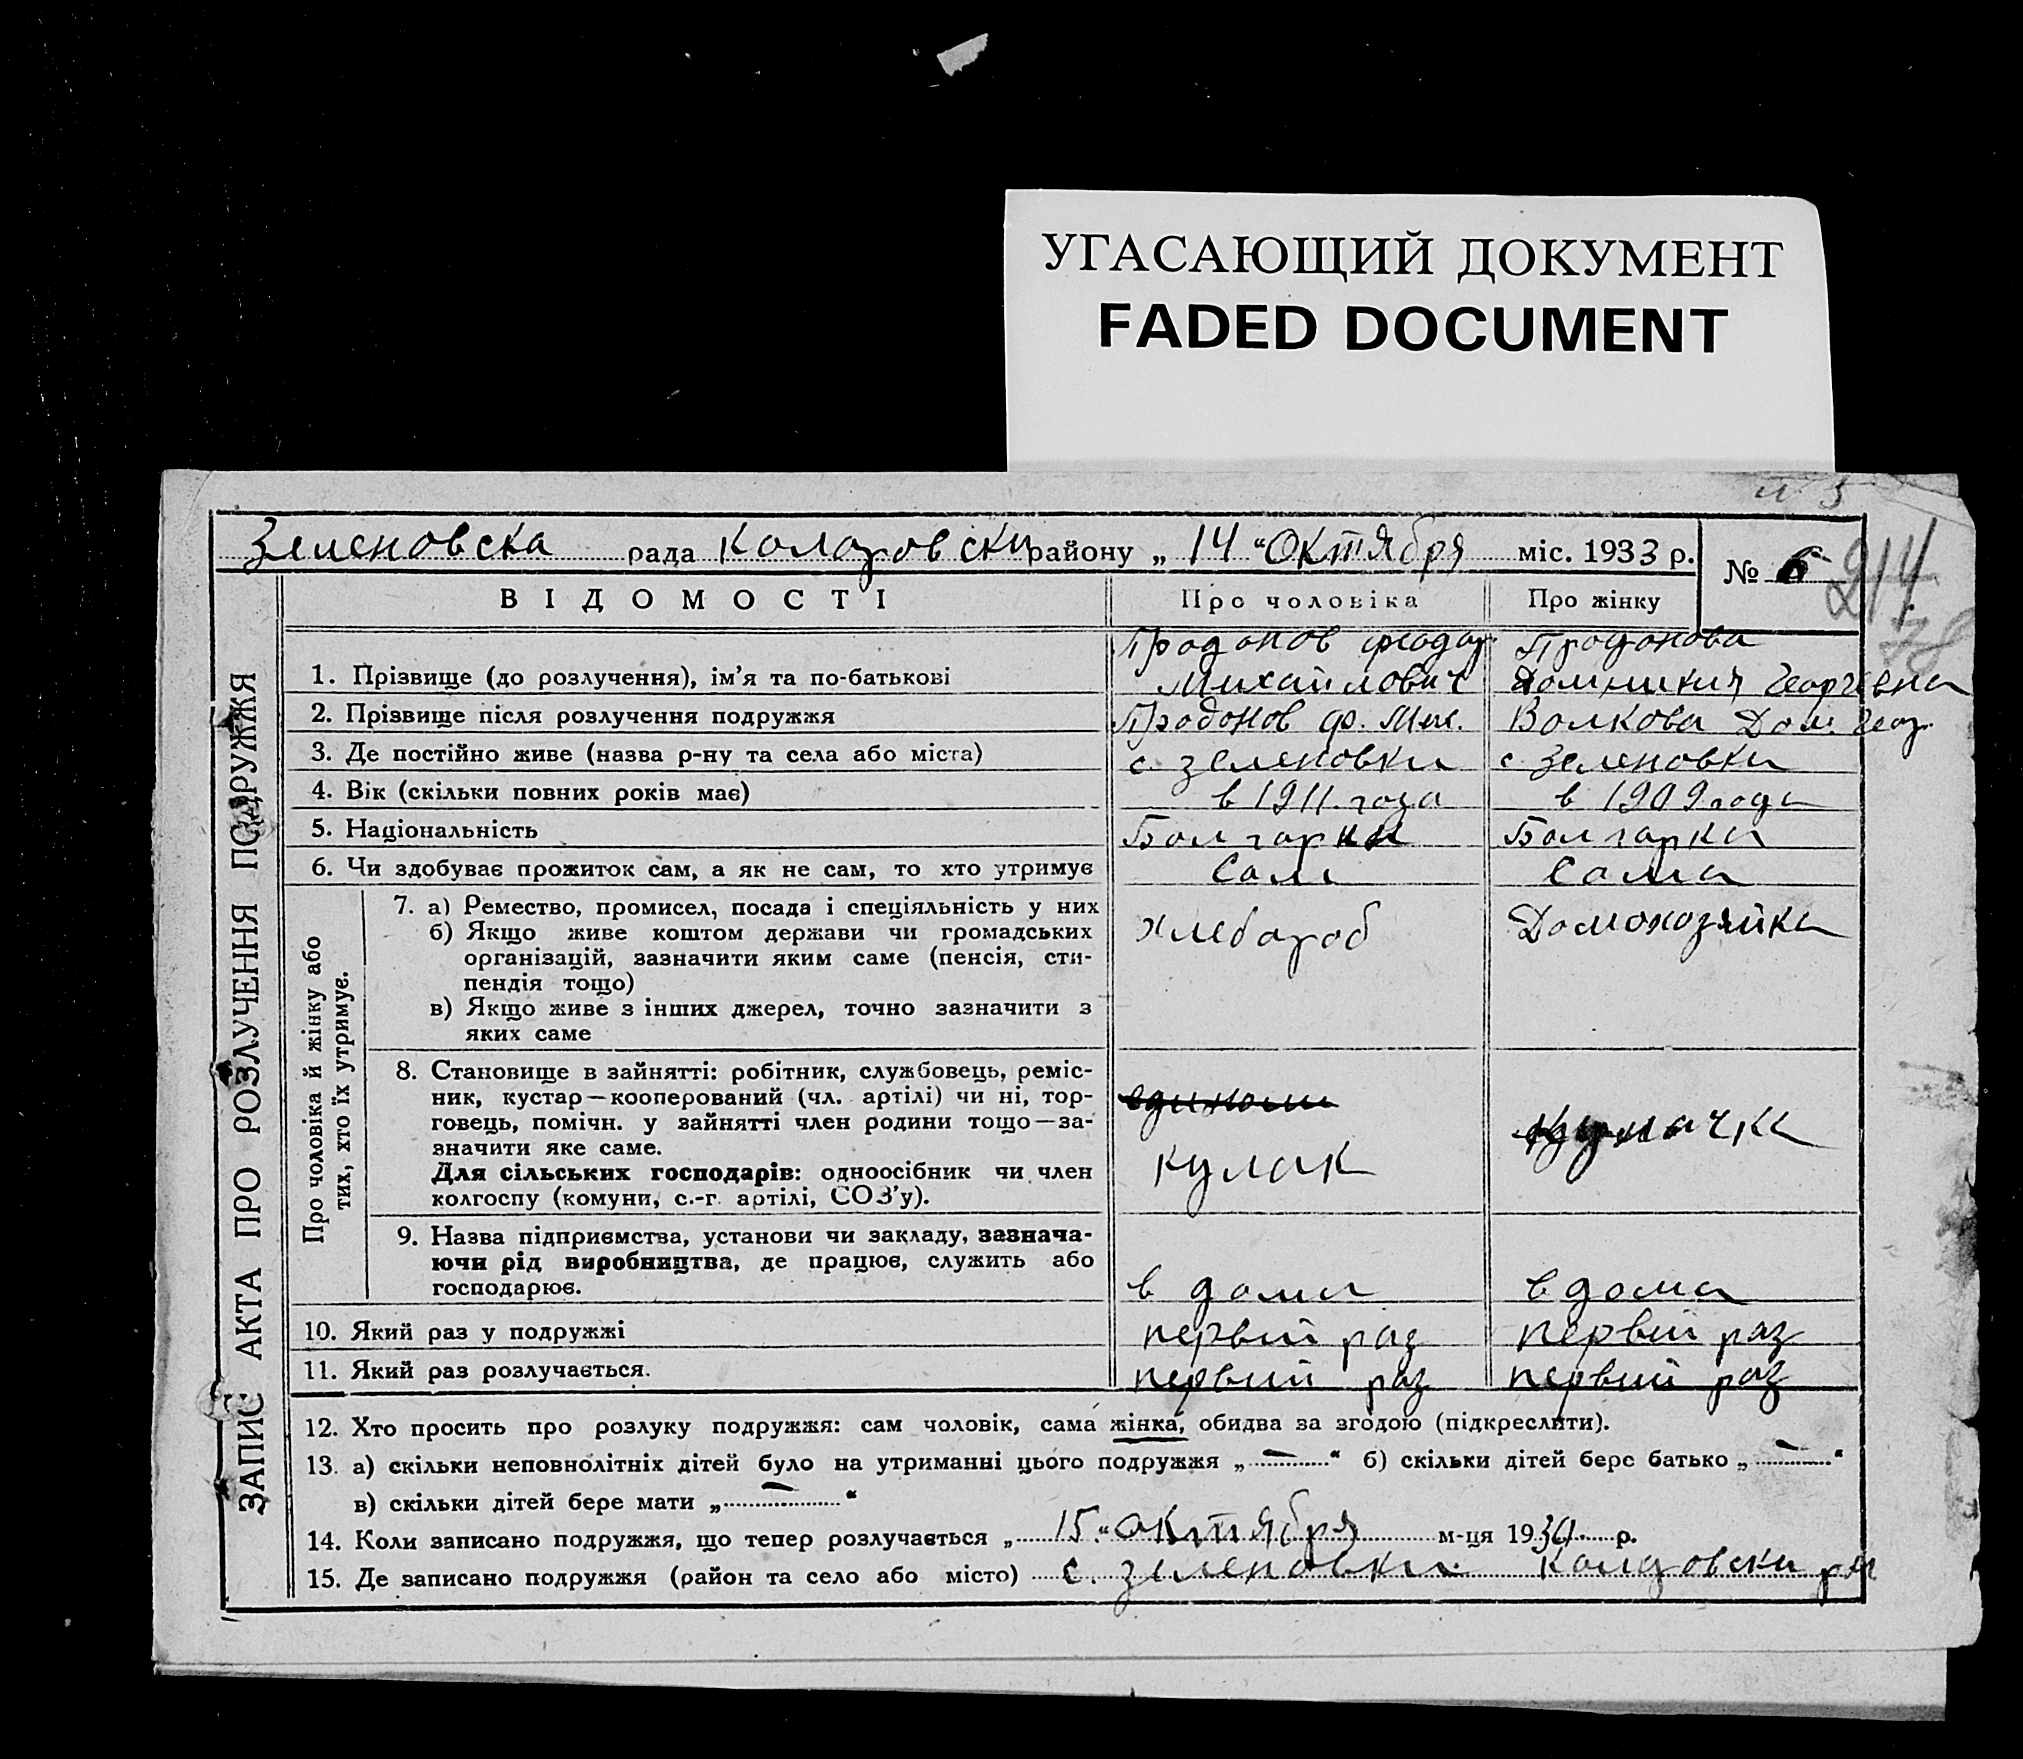 УГАСАЮЩИЙ ДОКУМЕНТ
FADED DOCUMENT
Зеленовска рада Коларовски району „ 14 “ Октября міс. 1933 р.
№ 6
214
78
ЗАПИС АКТА ПРО РОЗЛУЧЕННЯ ПОДРУЖЖЯ
ВІДОМОСТІ Про чоловіка Про жінку
Продонов феодор Продонова
1. Прізвище (до розлучення), ім'я та по-батькові Михайлович Домникия Георгевна
2. Прізвище після розлучення подружжя Продонов ф. Мих. Волкова Дом. Геор.
3. Де постійно живе (назва р-ну та села або міста) с. Зеленовки с Зеленовки
4. Вік (скільки повних років має) в 1911. года в 1909 года
5. Національність Болгарки Болгарки
6. Чи здобуває прожиток сам, а як не сам, то хто утримує Сам Сама
Про чоловіка й жінку або
тих, хто їх утримує.
7. а) Ремество, промисел, посада і спеціяльність у них хлебороб Домохозяйка
б) Якщо живе коштом держави чи громадських
організацій, зазначити яким саме (пенсія, сти-
пендія тощо)
в) Якщо живе з інших джерел, точно зазначити з
яких саме
8. Становище в зайнятті: робітник, службовець, реміс-
ник, кустар—кооперований (чл. артілі) чи ні, тор-
говець, помічн. у зайнятті член родини тощо—за- кулачка
значити яке саме.
Для сільських господарів: одноосібник чи член кулак
колгоспу (комуни, с.-г. артілі, СОЗ'у).
9. Назва підприємства, установи чи закладу, зазнача-
ючи рід виробництва, де працює, служить або
господарює. в дома в дома
10. Який раз у подружжі первий раз первий раз
11. Який раз розлучається. первий раз первий раз
12. Хто просить про розлуку подружжя: сам чоловік, сама жінка, обидва за згодою (підкреслити).
13. а) скільки неповнолітніх дітей було на утриманні цього подружжя „ — “ б) скільки дітей бере батько „ — “
в) скільки дітей бере мати „ — “
14. Коли записано подружжя, що тепер розлучається „ 15 “ октября м-ця 1930. р.
15. Де записано подружжя (район та село або місто) с. Зеленовки. Коларовски р-н